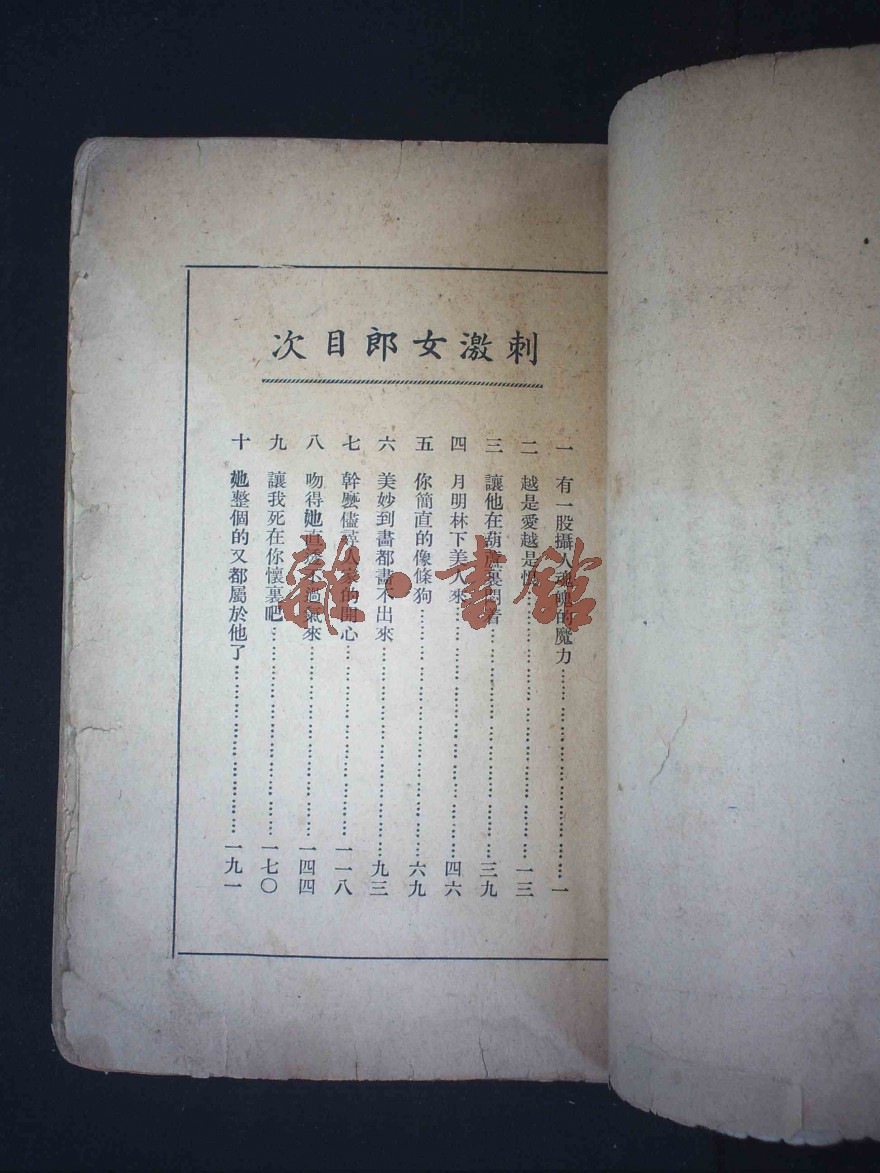 刺激女郎目次
一 有一股攝人魂魄的魔力……………………一
二 越是愛越是恨……………………一三
三 讓他在葫蘆裏悶着……………………三九
四 月明林下美人來……………………四六
五 你簡直的像條狗……………………六九
六 美妙到畫都畫不出來……………………九三
七 幹麼儘尋人家的開心……………………一一八
八 吻得她直透不過氣來……………………一四四
九 讓我死在你懷裏吧……………………一七〇
十 她整個的又都屬於他了……………………一九一
雜·書館